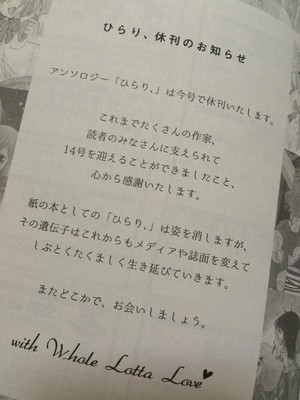 ひらり、休刊のお知らせ
アンソロジー「ひらり、」は今号で休刊いたします。
これまでたくさんの作家、
読者のみなさんに支えられて
14号を迎えることができましたこと、
心から感謝いたします。
紙の本としての「ひらり、」は姿を消しますが、
その遺伝子はこれからもメディアや誌面を変えて
しぶとくたくましく生き延びていきます。
またどこかで、お会いしましょう。
with Whole Lotta Love♥